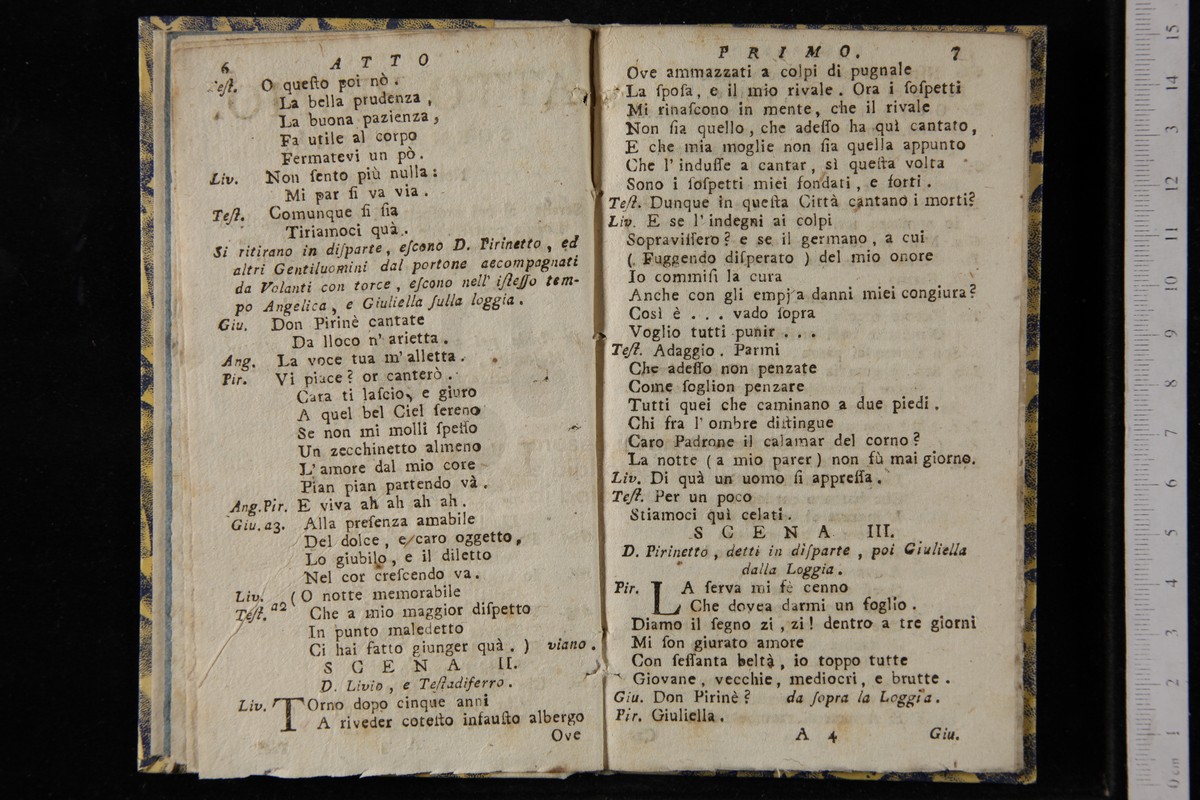 6 ATTO
Teſt. O queſto poi nò.
La bella prudenza,
La buona pazienza,
Fa utile al corpo
Fermatevi un pò.
Liv. Non ſento più nulla:
Mi par ſi va via.
Teſt. Comunque ſi ſia
Tiriamoci quà.
Si ritirano in diſparte, eſcono D. Pirinetto, ed
altri Gentiluomini dal portone accompagnati
da Volanti con torce, eſcono nell' iſteſſo tem-
po Angelica, e Giuliella ſulla loggia.
Giu. Don Pirinè cantate
Da lloco n' arietta.
Ang. La voce tua m' alletta.
Pir. Vi piace? or canterò.
Cara ti laſcio, e giuro
A quel bel Ciel ſereno
Se non mi molli ſpeſſo
Un zecchinetto almeno
L' amore dal mio core
Pian pian partendo và.
Ang.Pir. E viva ah ah ah ah.
Giu. a3. Alla preſenza amabile
Del dolce, e caro oggetto,
Lo giubilo, e il diletto
Nel cor creſcendo va.
Liv. (O notte memorabile
Teſt. a2 Che a mio maggior diſpetto
In punto maledetto
Ci hai fatto giunger quà.) viano.
SCENA II.
D. Livio, e Teſtadiferro.
Liv. TOrno dopo cinque anni
A riveder coteſto infauſto albergo
Ove
PRIMO. 7
Ove ammazzati a colpi di pugnale
La ſpoſa, e il mio rivale. Ora i ſoſpetti
Mi rinaſcono in mente, che il rivale
Non ſia quello, che adeſſo ha quì cantato,
E che mia moglie non ſia quella appunto
Che l' induſſe a cantar, sì queſta volta
Sono i ſoſpetti miei fondati, e forti.
Teſt. Dunque in queſta Città cantano i morti?
Liv. E se l' indegni ai colpi
Sopraviſſero? e se il germano, a cui
( Fuggendo diſperato ) del mio onore
Io commiſi la cura
Anche con gli empj a danni miei congiura?
Così è . . . vado ſopra
Voglio tutti punir . . .
Teſt. Adaggio. Parmi
Che adeſſo non penzate
Come ſoglion penzare
Tutti quei che caminano a due piedi.
Chi fra l' ombre diſtingue
Caro Padrone il calamar del corno?
La notte (a mio parer) non fù mai giorno.
Liv. Di quà un uomo ſi appreſſa.
Teſt. Per un poco
Stiamoci quì celati.
SCENA III.
D. Pirinetto, detti in diſparte, poi Giuliella
dalla Loggia.
Pir. LA ſerva mi fè cenno
Che dovea darmi un foglio.
Diamo il ſegno zi, zi! dentro a tre giorni
Mi ſon giurato amore
Con ſeſſanta beltà, io toppo tutte
Giovane, vecchie, mediocri, e brutte.
Giu. Don Pirinè? da ſopra la Loggia.
Pir. Giuliella.
A 4 Giu.
0 cm 1 2 3 4 5 6 7 8 9 10 11 12 13 14 15